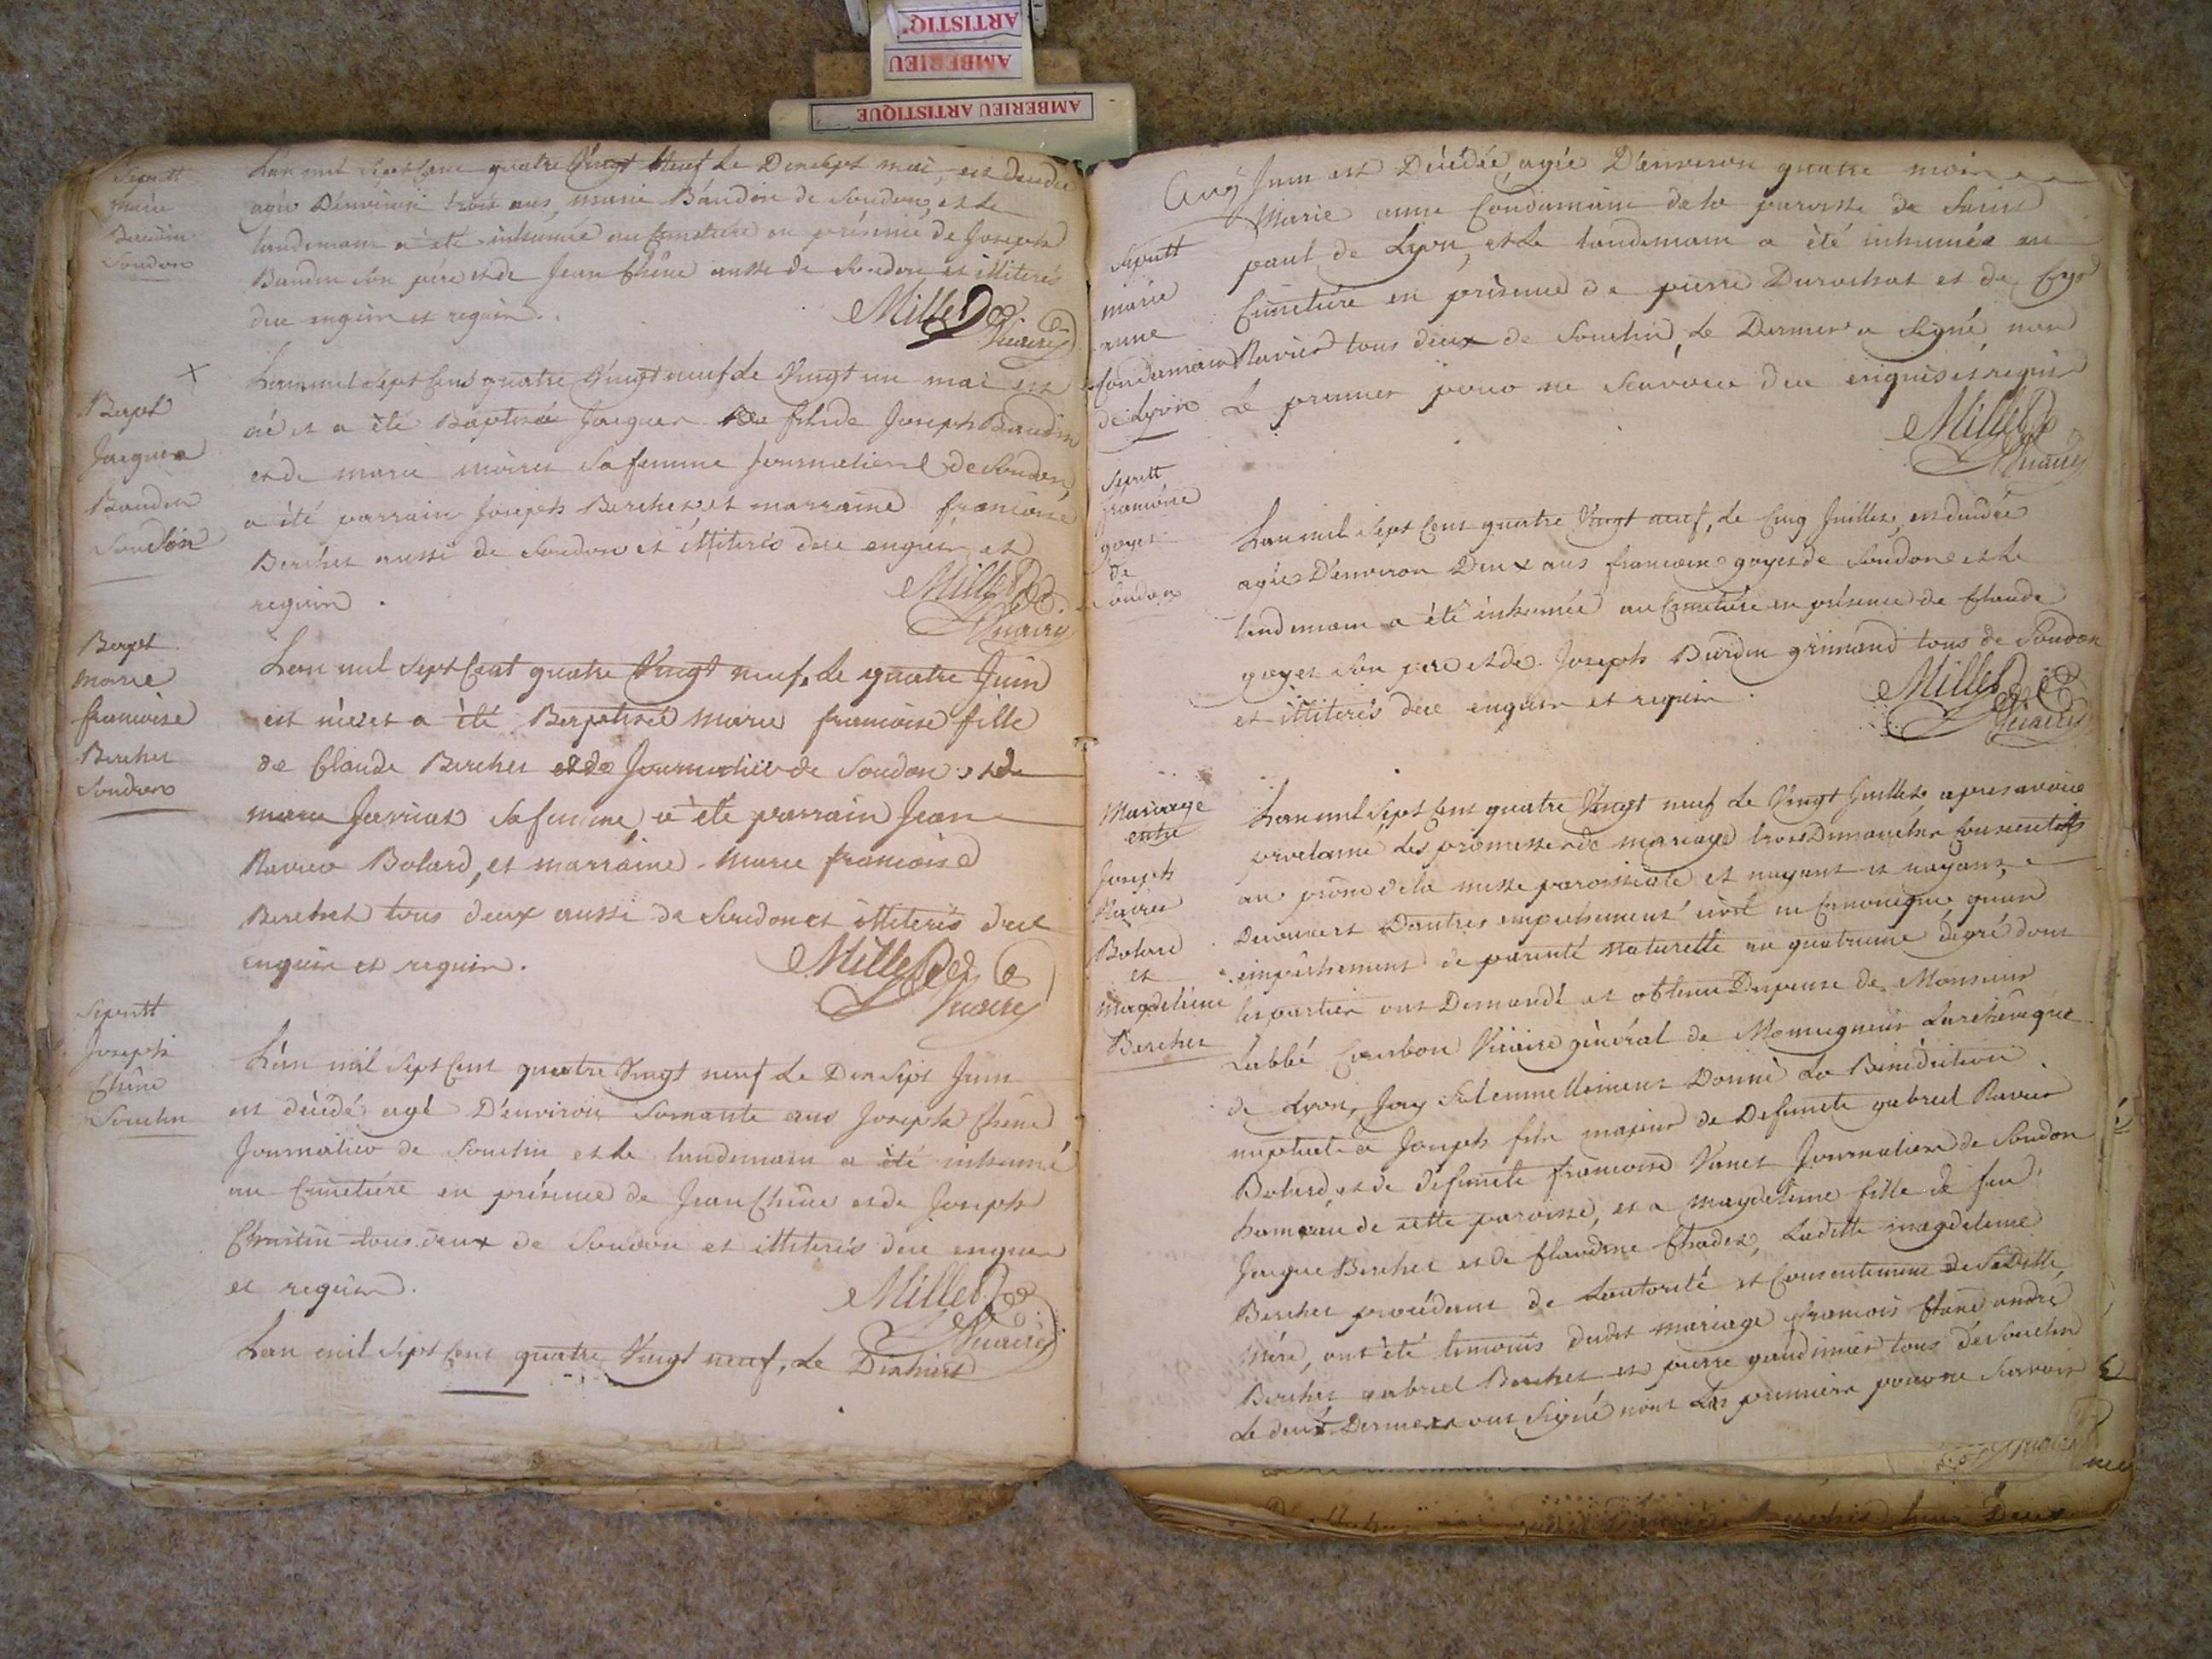 ARTISTIQ
AMBERIEU
AMBERIEU ARTISTIQUE
Sepultt
marie
Baudin
Soudon
Lan mil sept cent quatre Vingt Neuf Le Dixsept mai, est decedée
agée D'environ trois ans, marie Baudin de Soudon, et le
landemain a été inhumée au Cimetière en présence de Joseph
Baudin son père et de Jean Chêne aussi de Soudon et illiterés
de ce enquis et requis.
Millet
Vicaire
Bapt
Jacques
Baudin
Soudon
Lan mil sept Cent quatre Vingt neuf Le Vingt un mai est
né et a été Baptisé Jacques fils de Joseph Baudin
et de marie sa femme Journalier de Soudon,
a été parrain Joseph Berchet et marraine françoise
Berchet aussi de Soudon et illiterés de ce enquis et
requis.
Millet
Vicaire
Bapt
Marie
françoise
Berchet
Soudon
Lan mil Sept Cent quatre Vingt neuf, Le quatre Juin
est née et a été Baptisée Marie françoise fille
de Claude Berchet et de Journalier de Soudon et de
marie sa femme, a été parrain Jean
Ravier Bolard, et marraine Marie françoise
Berchet tous deux aussi de Soudon et illiterés de ce
enquis et requis.
Millet
Vicaire
Sepultt
Joseph
Chêne
Soudon
Lan mil Sept Cent quatre Vingt neuf Le Dix Sept Juin
est décédé agé D'environ Soixante ans Joseph Chêne
Journalier de et le landemain a été inhumé
au Cimetière en présence de Jean Chêne et de Joseph
tous deux de Soudon et illiterés de ce enquis
et requis.
Millet
Vicaire
Lan mil Sept Cent quatre Vingt neuf, Le Dixhuit
Juin est Décédée, agée D'environ quatre mois
Marie anne Condamain de la paroisse de Saint
paul de Lyon, et Le landemain a été inhumée au
Cimetière en présence de pierre Durochat et de
Ravier tous deux de, Le Dernier a Signé, non
Le premier pour ne Scavoir de ce enquis et requis
Sepultt
marie
anne
Condamain
de Lyon
Millet
Vicaire
Sepultt
françoise
goyet
de
Soudon
Lan mil Sept Cent quatre Vingt neuf, Le Cinq Juillet, est décédée
agée D'environ Deux ans françoise goyet de Soudon et Le
landemain a été inhumée au Cimetière en présence de Claude
goyet son père et de Joseph Burdin grimand tous de Soudon
et illiterés de ce enquis et requis.
Millet
Vicaire
Mariage
entre
Joseph
Ravier
Bolard
et
Magdeleine
Berchet
Lan mil Sept Cent quatre Vingt neuf Le Vingt Juillet apres avoir
proclamé Les promesses de mariage trois Dimanches Consecutifs
au prône de la messe paroissiale et nayant et nayant
Decouvert D'autres empechement civil ni Canonique quun
empêchement de parenté naturelle au quatrieme dégré dont
les parties ont Demandé et obtenu Dispense de Monsieur
Labbé Courbon Vicaire général de Monseigneur Larchevêque
de Lyon, Jay Solemnellement Donné La Bénédiction
nuptiale a Joseph fils majeur de Defuncts gabriel Ravier
Bolard et de Defuncte françoise Journalier de Soudon
hameau de cette paroisse, et a magdeleine fille de feu
Jacque Berchet et de Claudine, Laditte magdeleine
Berchet procédant de Lautorité et Consentement de Saditte
Mère, ont été temoins dudit mariage françois Chêne andré
Berchet gabriel Berchet et pierre tous de
Le deux Derniers ont Signé non Les premiers pour ne Scavoir